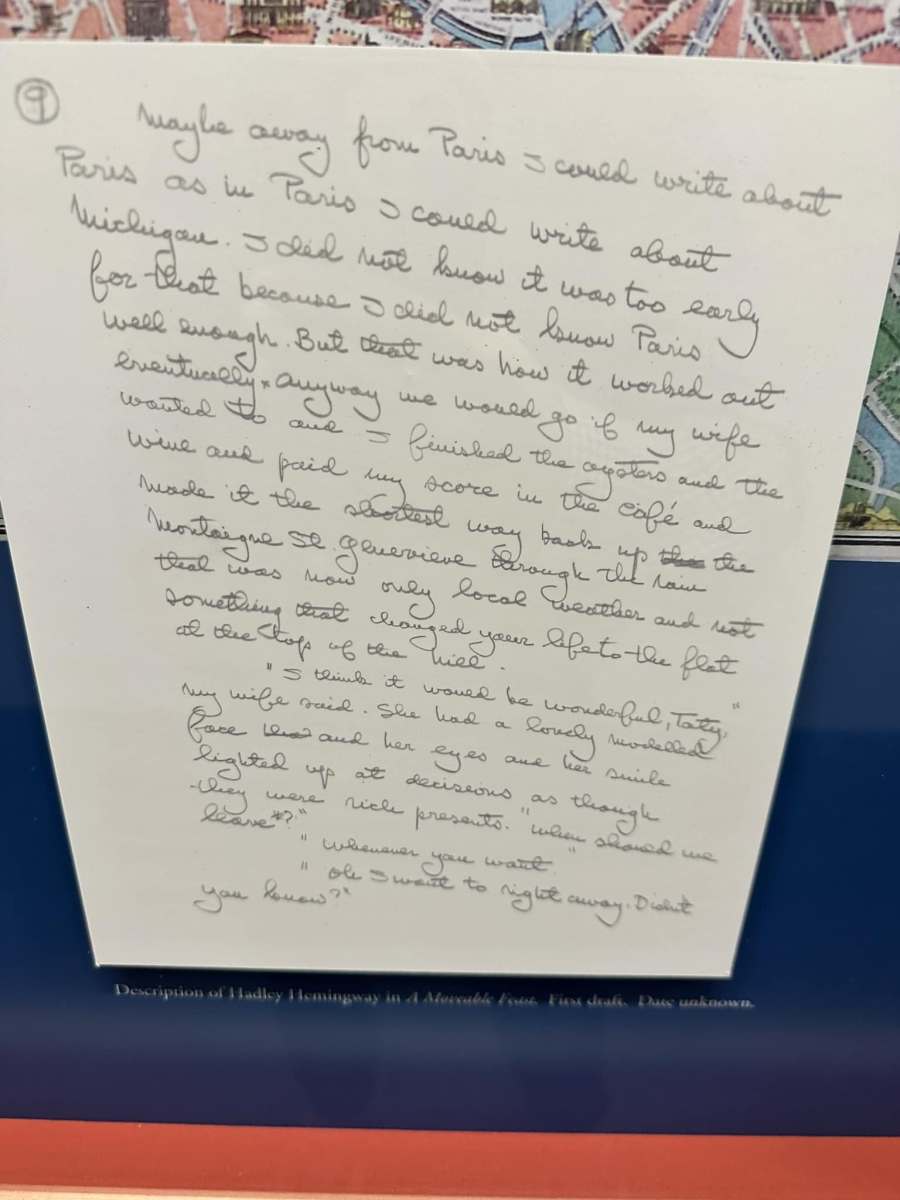 9
Maybe away from Paris I could write about
Paris as in Paris I could write about
Michigan. I did not know it was too early
for that because I did not know Paris
well enough. But that was how it worked out
eventually. Anyway we would go if my wife
wanted to and I finished the oysters and the
wine and paid my score in the café and
made it the shortest way back up the
Montaigne St. Genevieve through the rain
that was now only local weather and not
something that changed your life to the flat
at the top of the hill.
"I think it would be wonderful, Taty,"
my wife said. She had a lovely modelled
face and her eyes and her smile
lighted up at decisions as though
they were rich presents. "When should we
leave?"
"Whenever you want."
"Oh I want to right away. Didn't
you know?"
Description of Hadley Hemingway in A Moveable Feast. First draft. Date unknown.